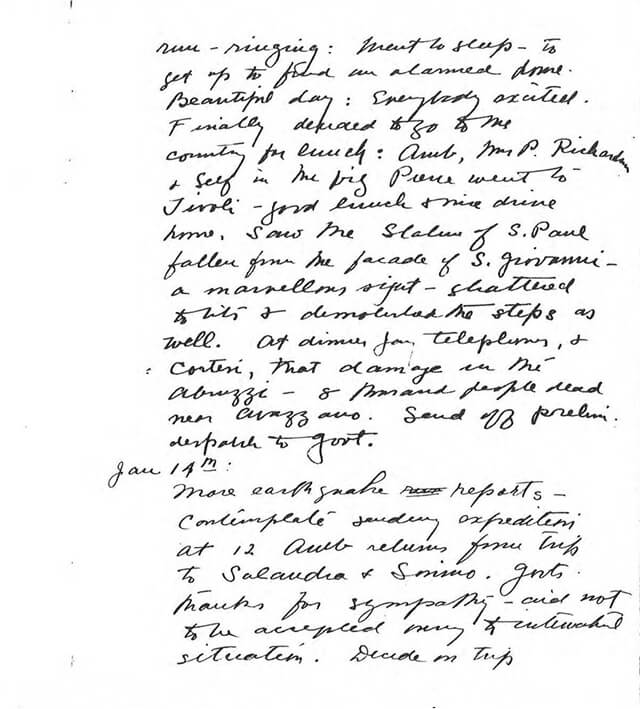 run - ringing: Went to sleep - to
get up to find an alarmed home.
Beautiful day: Everybody excited.
Finally decided to go to the
country for lunch: Amb, Mrs P. Richardson
& Self in the big Pierce went to
Tivoli - good lunch & nice drive
home. Saw the Statue of S. Paul
fallen from the facade of S. Giovanni -
a marvellous sight - shattered
to bits & demolished the steps as
well. At dinner Jay telephones, &
: Cortesi, that damage in the
Abruzzi - 8 thousand people dead
near Avazzano. Send off prelim.
despatch to Govt.
Jan 14th:
More earthquake reports -
Contemplate sending expedition
at 12 Amb returns from trip
to Salandra & Sonino. Govts.
thanks for sympathy - aid not
to be accepted owing to
situation. Decide on trip